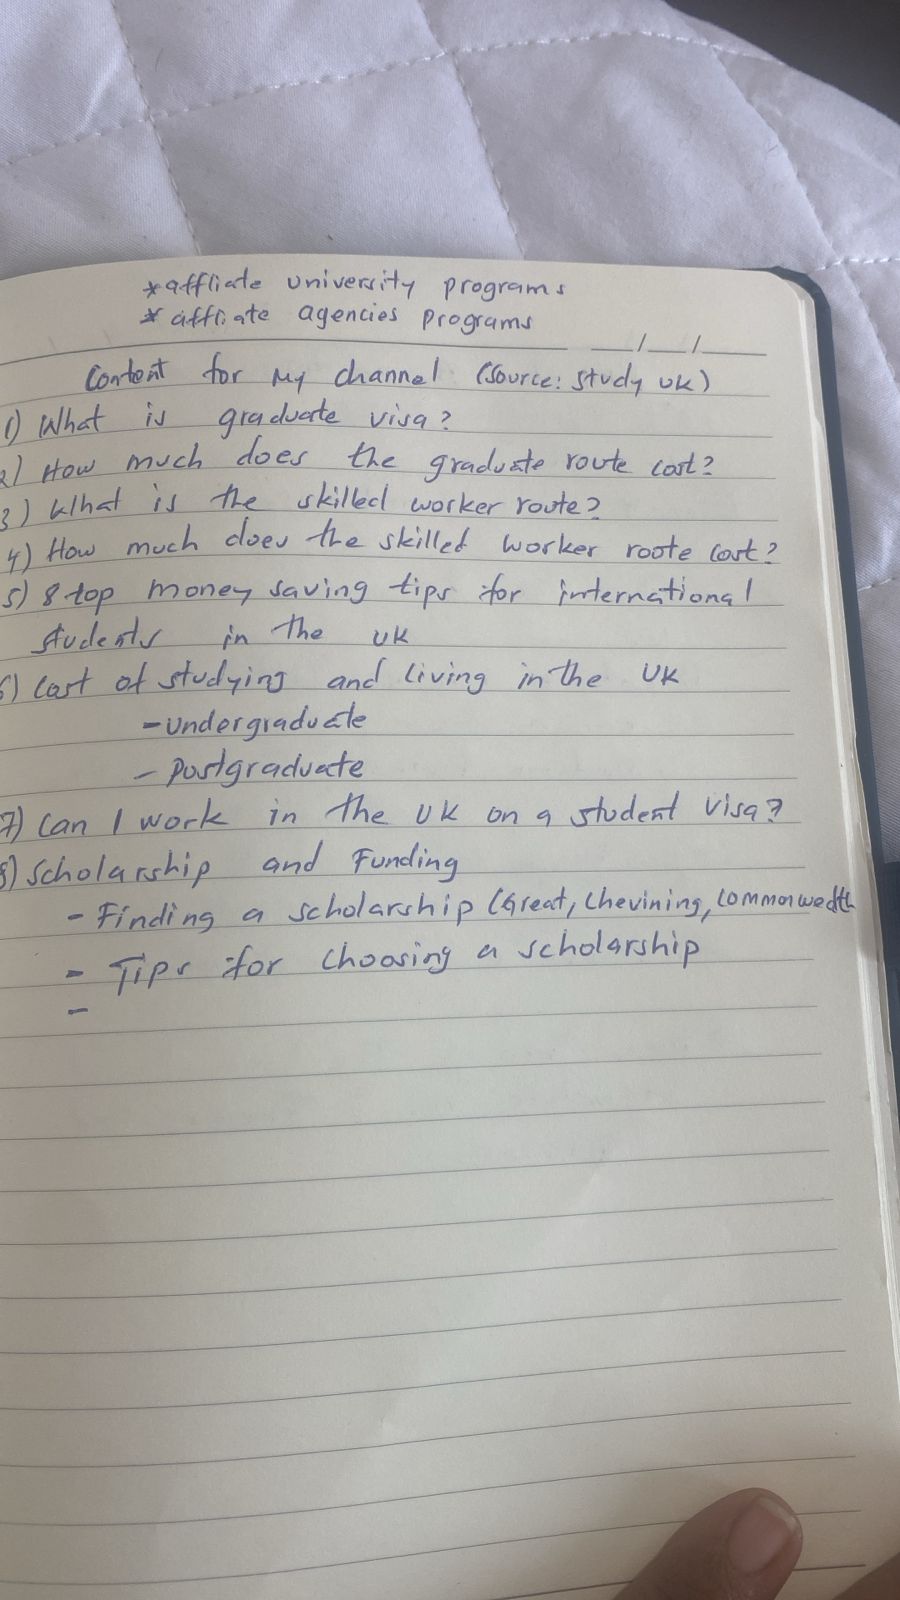 *affliate university programs
* affliate agencies programs
__/__/____
Content for my channel (Source: Study UK)
1) What is graduate visa?
2) How much does the graduate route cost?
3) What is the skilled worker route?
4) How much does the skilled worker route cost?
5) 8 top money saving tips for international
students in the UK
6) Cost of studying and living in the UK
- Undergraduate
- Postgraduate
7) Can I work in the UK on a student visa?
8) Scholarship and Funding
- Finding a scholarship (Great, Chevining, Commonwedth
- Tips for choosing a scholarship
-